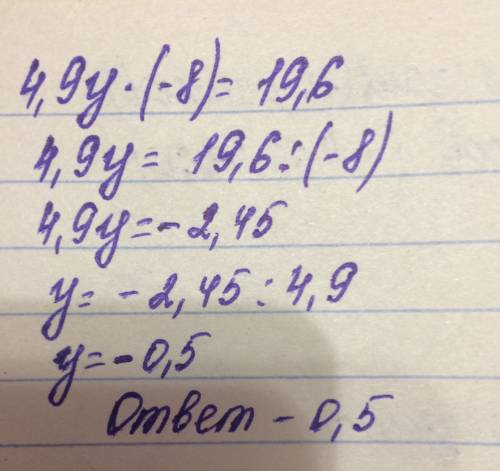 4,9y·(-8)= 19,6
4,9y= 19,6:(-8)
4,9y=-2,45
y= -2,45:4,9
y=-0,5
Ответ -0,5